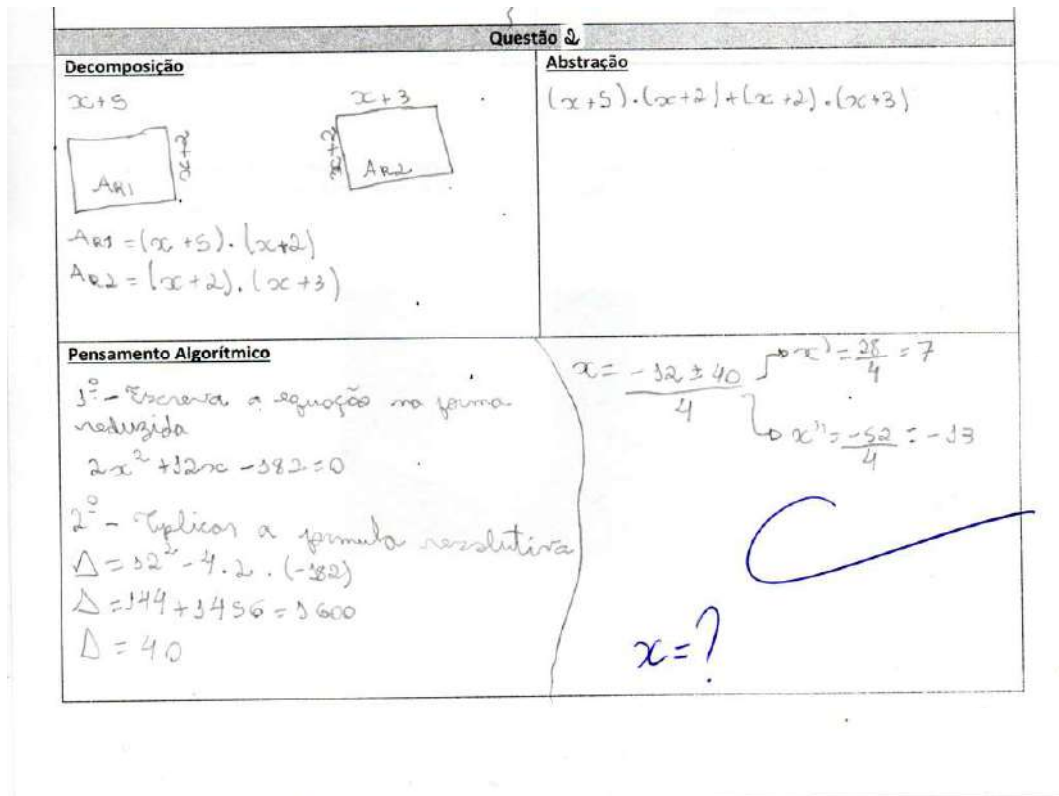 Questão 2
Decomposição
x+5
x+2
AR1
x+3
x+2
AR2
AR1 = (x+5).(x+2)
AR2 = (x+2).(x+3)
Abstração
(x+5).(x+2)+(x+2).(x+3)
Pensamento Algorítmico
1º - Escreva a equação na forma
reduzida
2x² +12x -182=0
2º - Aplicar a formula resolutiva
Δ = 12² - 4.2.(-182)
Δ = 144 + 1456 = 1600
Δ = 40
x = (-12 ± 40)/4
x' = 28/4 = 7
x'' = -52/4 = -13
x=?